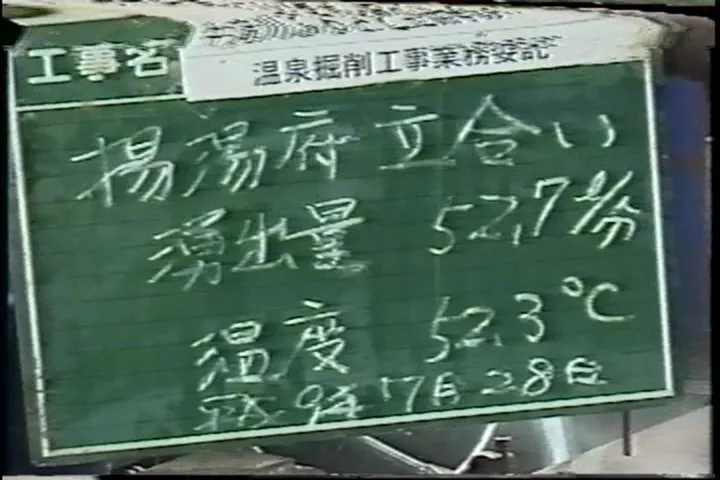 工事名
温泉掘削工事業務委託
揚湯府立合い
湧出量 52.7ℓ/分
温度 52.3℃
平成9年7月28日